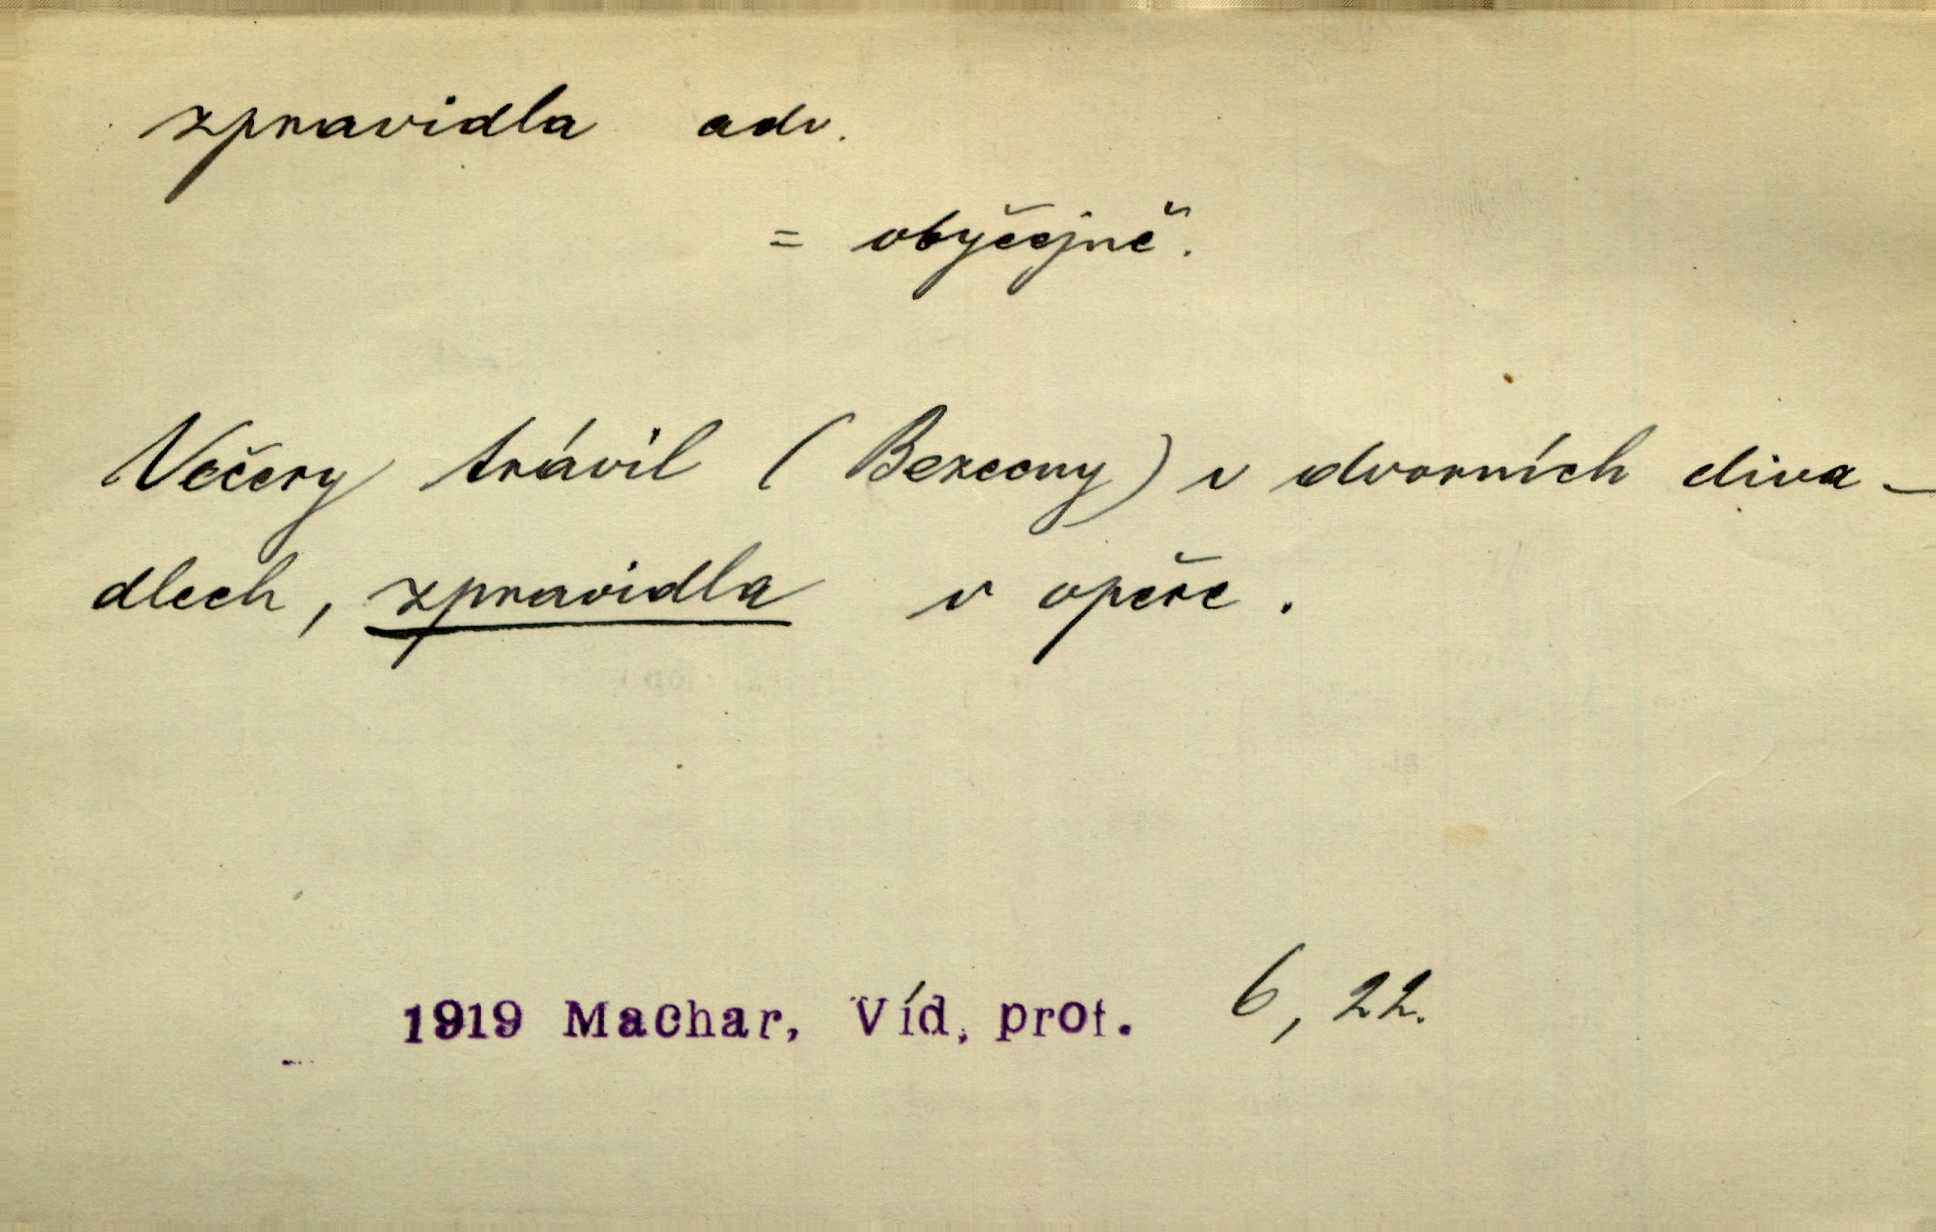 zpravidla adv.
= obyčejně.
Večery trávil (Bezecny) v dvorních diva-
dlech, zpravidla v opeře.
1919 Machar, Víd. prot. 6, 22.